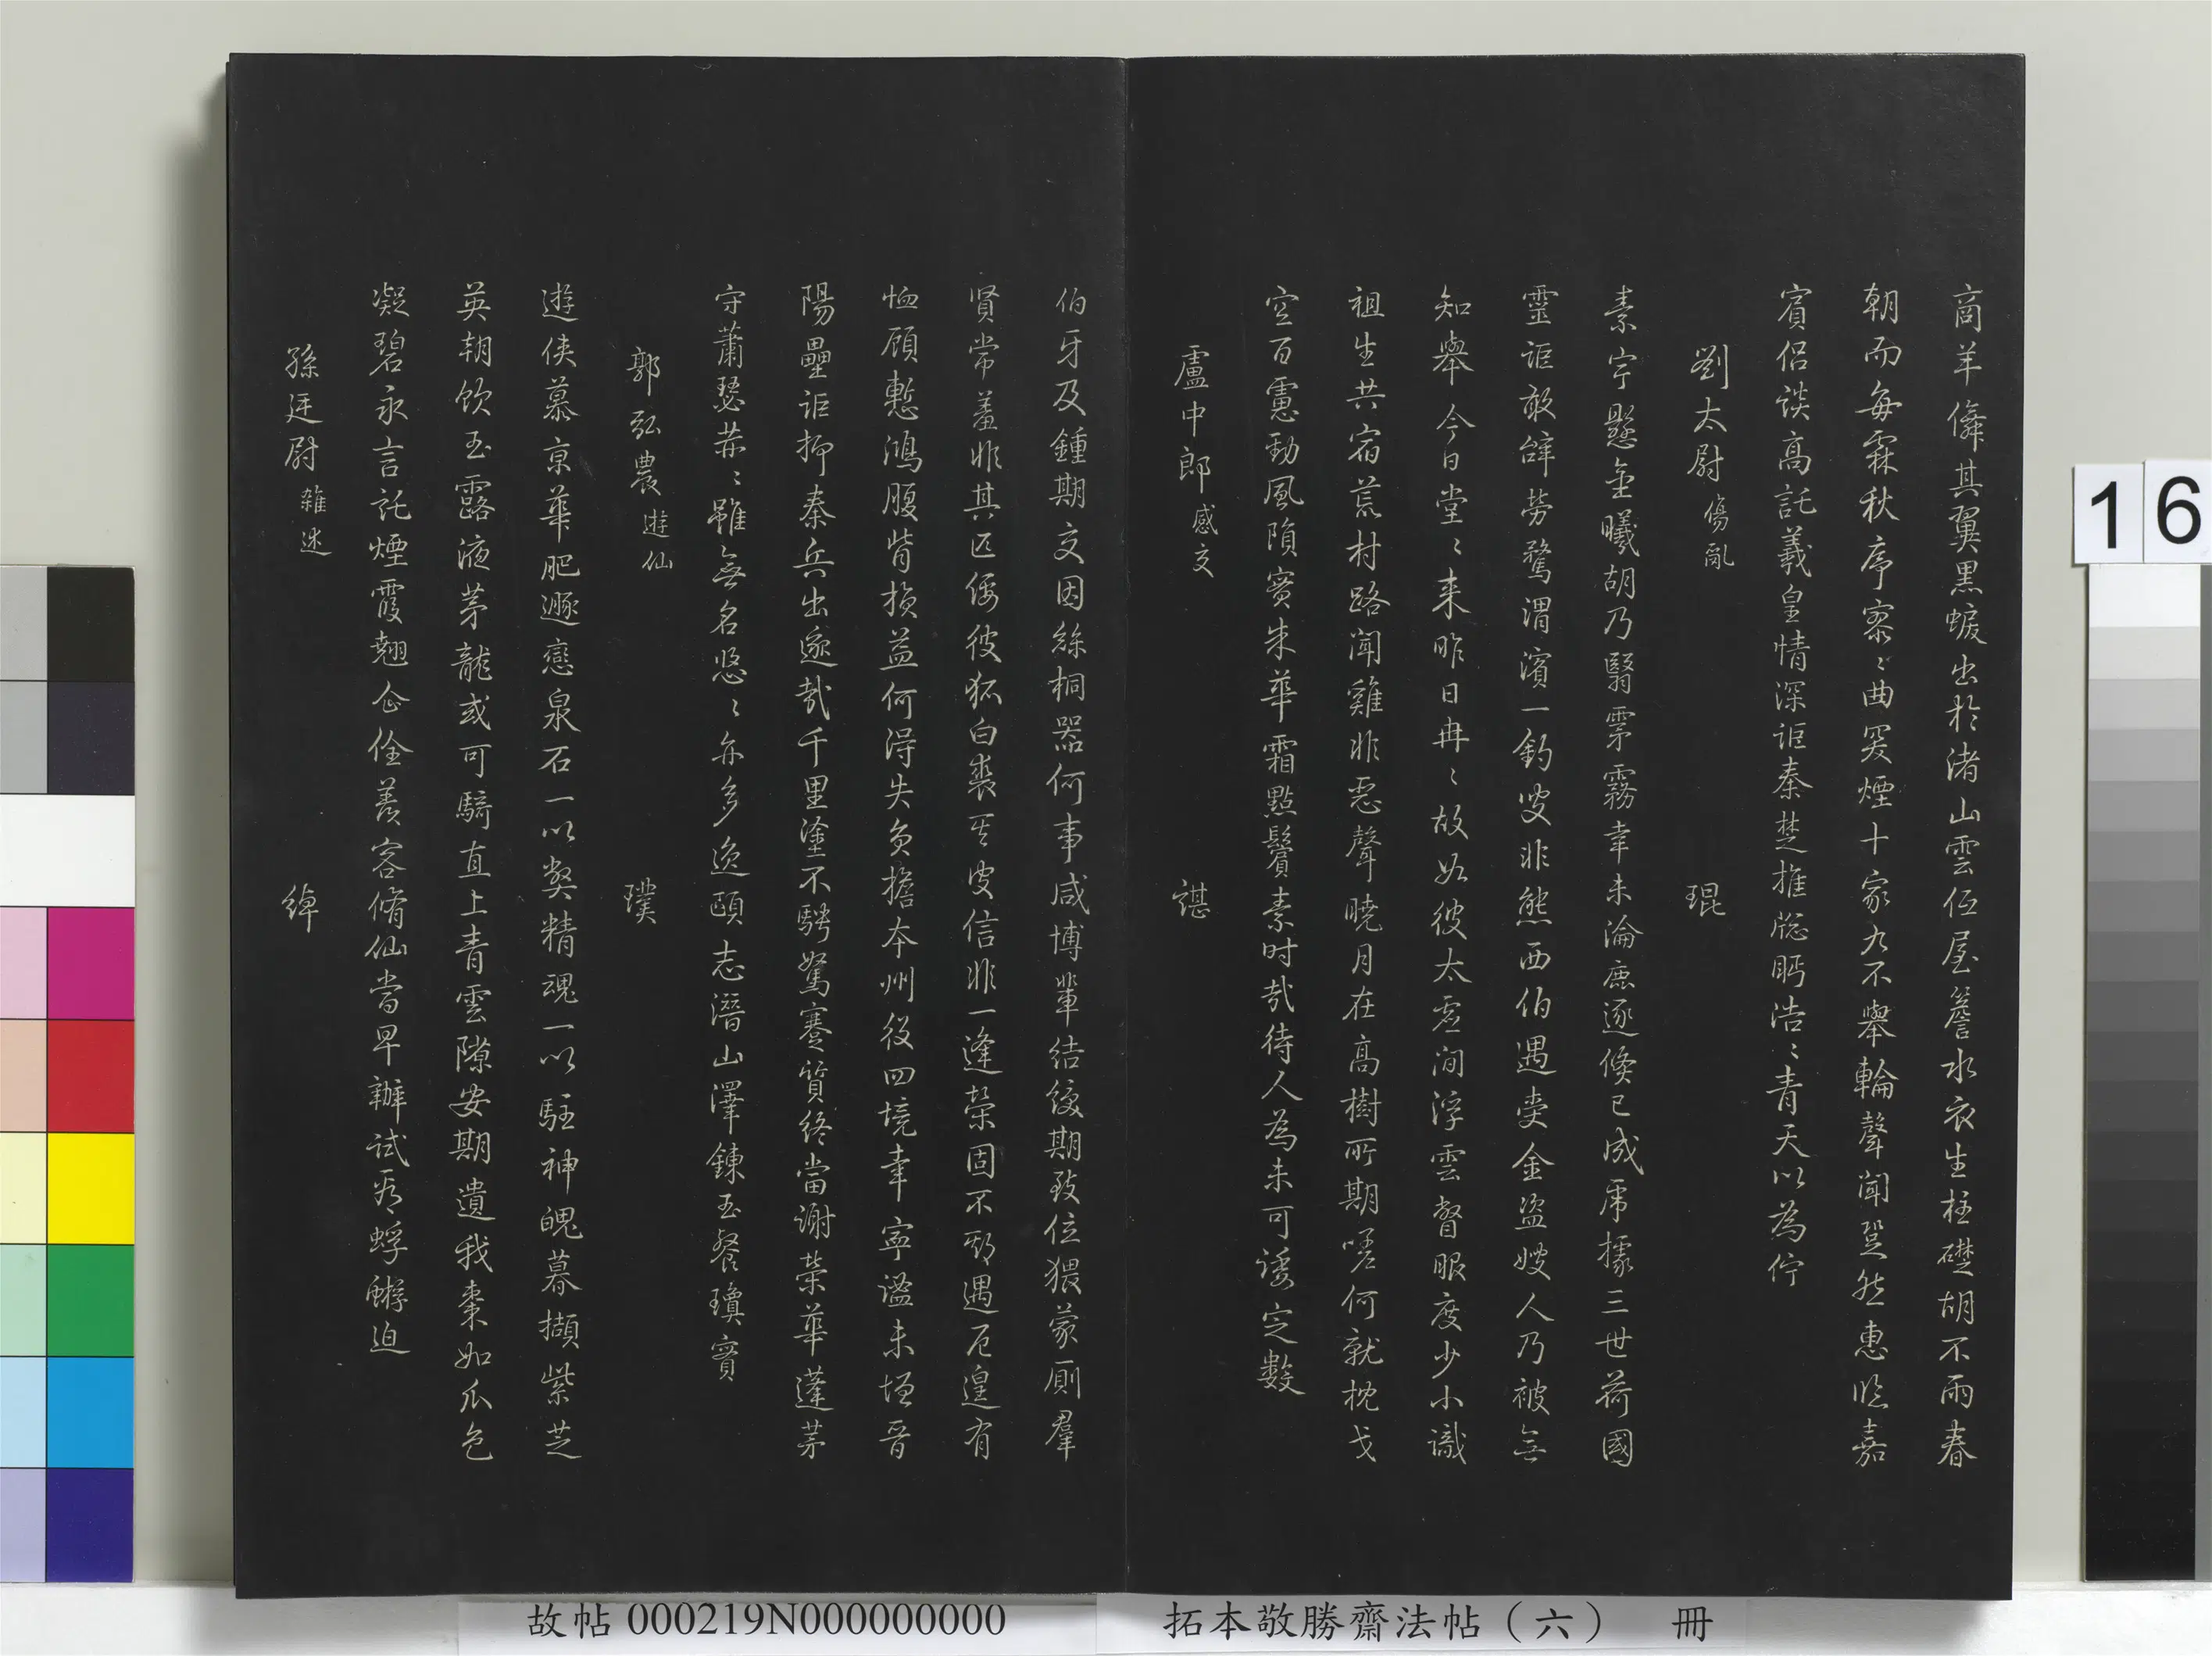 商羊儛其翼黑蜧出於渚山雲伍屋簷水衣生柱礎胡不雨春
朝而每霖秋序密〻曲突煙十家九不舉輪聲聞跫然惠臨嘉
賓侶談高託羲皇情深詎秦楚推牕眄浩〻青天以為佇
劉太尉傷亂 琨
素宇懸金曦胡乃翳雰霧幸未淪鹿逐倏已成乕據三世荷國
靈詎敢辭勞騖渭濱一釣叟非熊西伯遇賣金盜嫂人乃被無
知舉今日堂〻来昨日冉〻故如彼太虛間浮雲瞥眼度少小識
祖生共宿荒村路聞雞非惡聲曉月在高樹所期嗟何就枕戈
空百憲動風隕寶朱華霜點鬢素时哉待人為未可諉定數
盧中郎感交 諶
伯牙及鍾期交因絲桐器何事咸博輩結綬期致位猥蒙厠羣
賢常羞非其匹俀彼狐白裘㒳皮信非一逢榮固不邪遇厄遑有
恤顧慙鴻腹背損益何得失負擔本州役四境幸寧謐未極晉
陽壘詎抑秦兵出遂哉千里塗不騁駑蹇質終當謝榮華蓬茅
守蕭瑟茶〻雖無名悠〻亦多逸頤志潛山澤鍊玉餐瓊實
郭弘農遊仙 璞
遊俠慕京華肥遯戀泉石一以獘精魂一以駐神魄暮擷紫芝
英朝飲玉露液茅龍或可騎直上青雲隙安期遺我棗如瓜色
凝碧永言託煙霞翹企佺羨客脩仙當早辦試看蜉蝣迫
孫廷尉雜述 綽
16
故帖 000219N000000000
拓本敬勝齋法帖（六） 冊